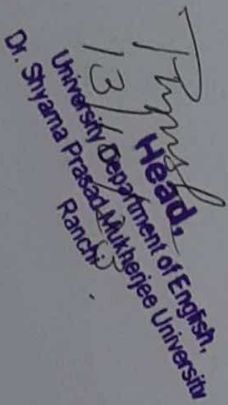 13/
Head,
University Department of English,
Dr. Shyama Prasad Mukherjee University
Ranchi